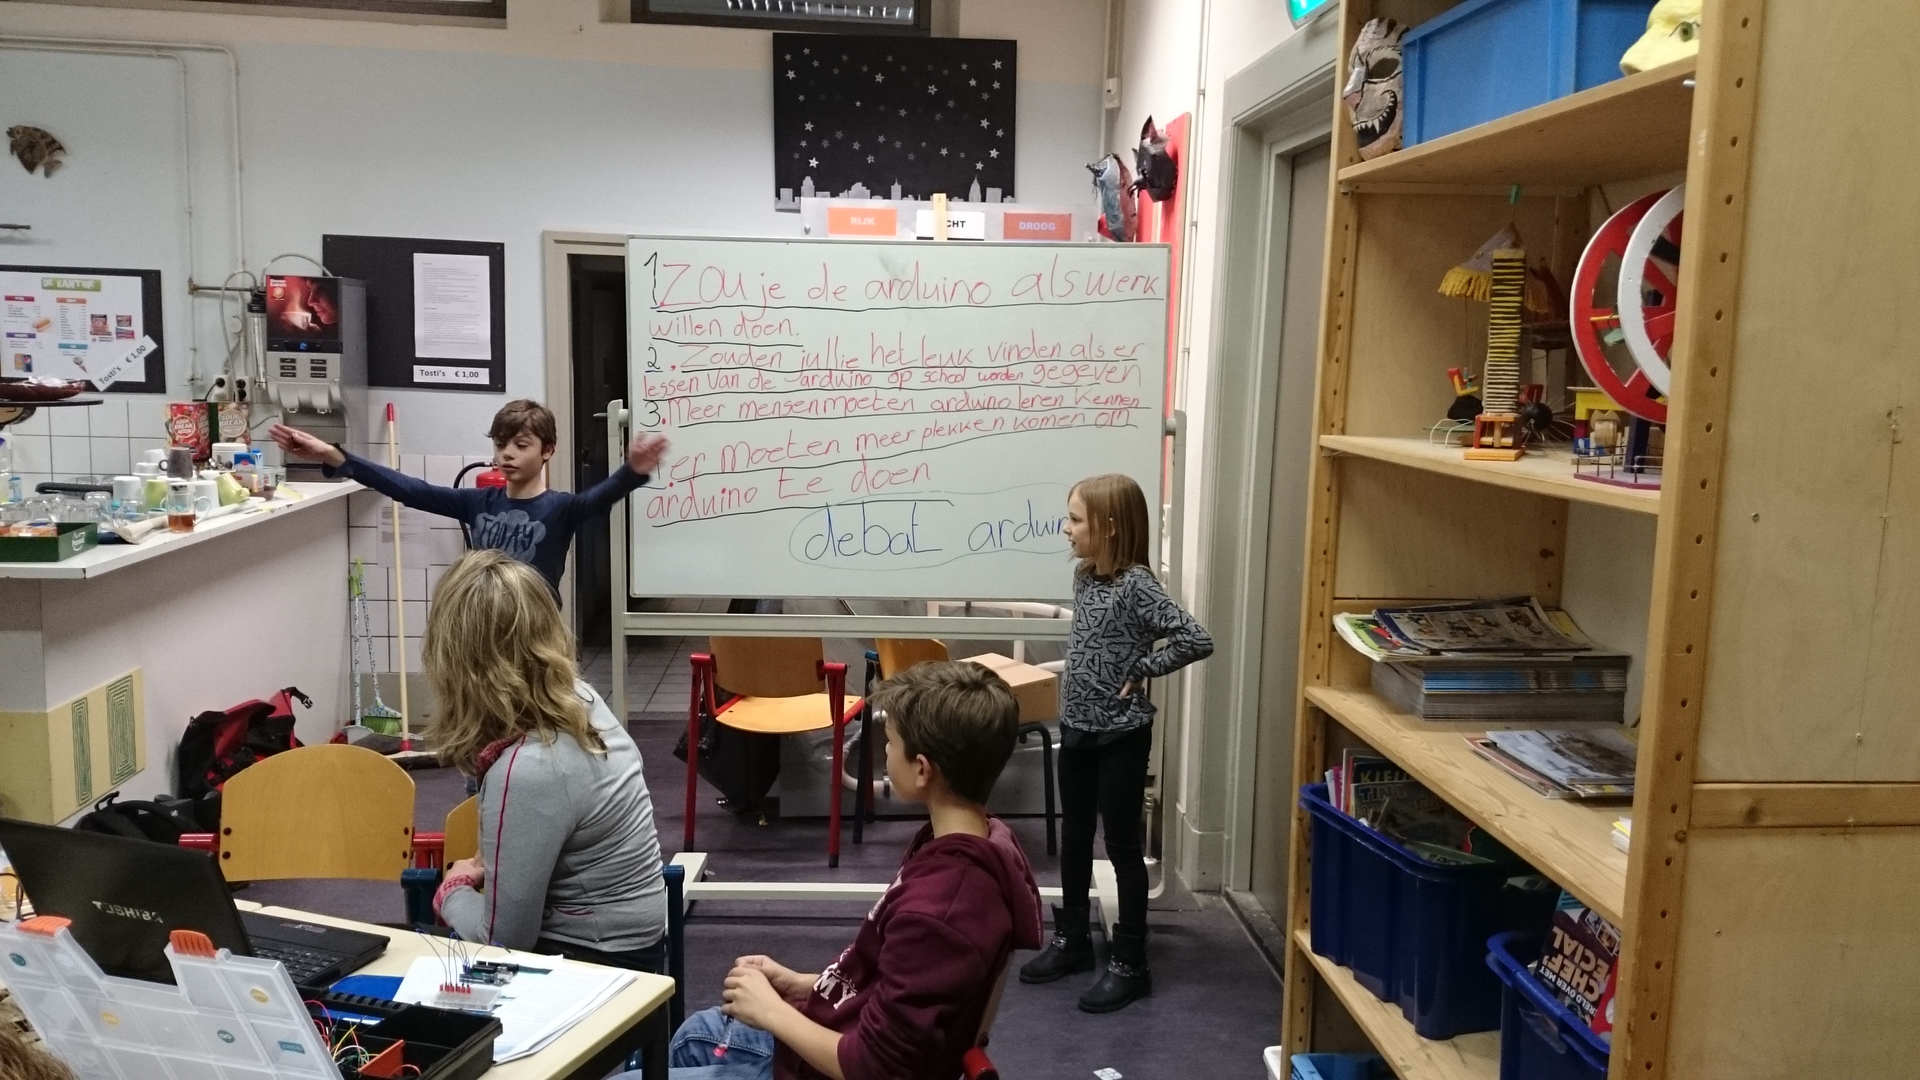 RIJK
CHT
DROOG
1 Zou je de arduino als werk
willen doen.
2. Zouden jullie het leuk vinden als er
lessen van de arduino op school worden gegeven
3. Meer mensen moeten arduino leren kennen
er moeten meer plekken komen om
arduino te doen
debat arduin
DE KANTINE
Tosti's € 1,00
Tosti's € 1,00
TODAY
TOSHIBA
MY
CHEF
ECIAL